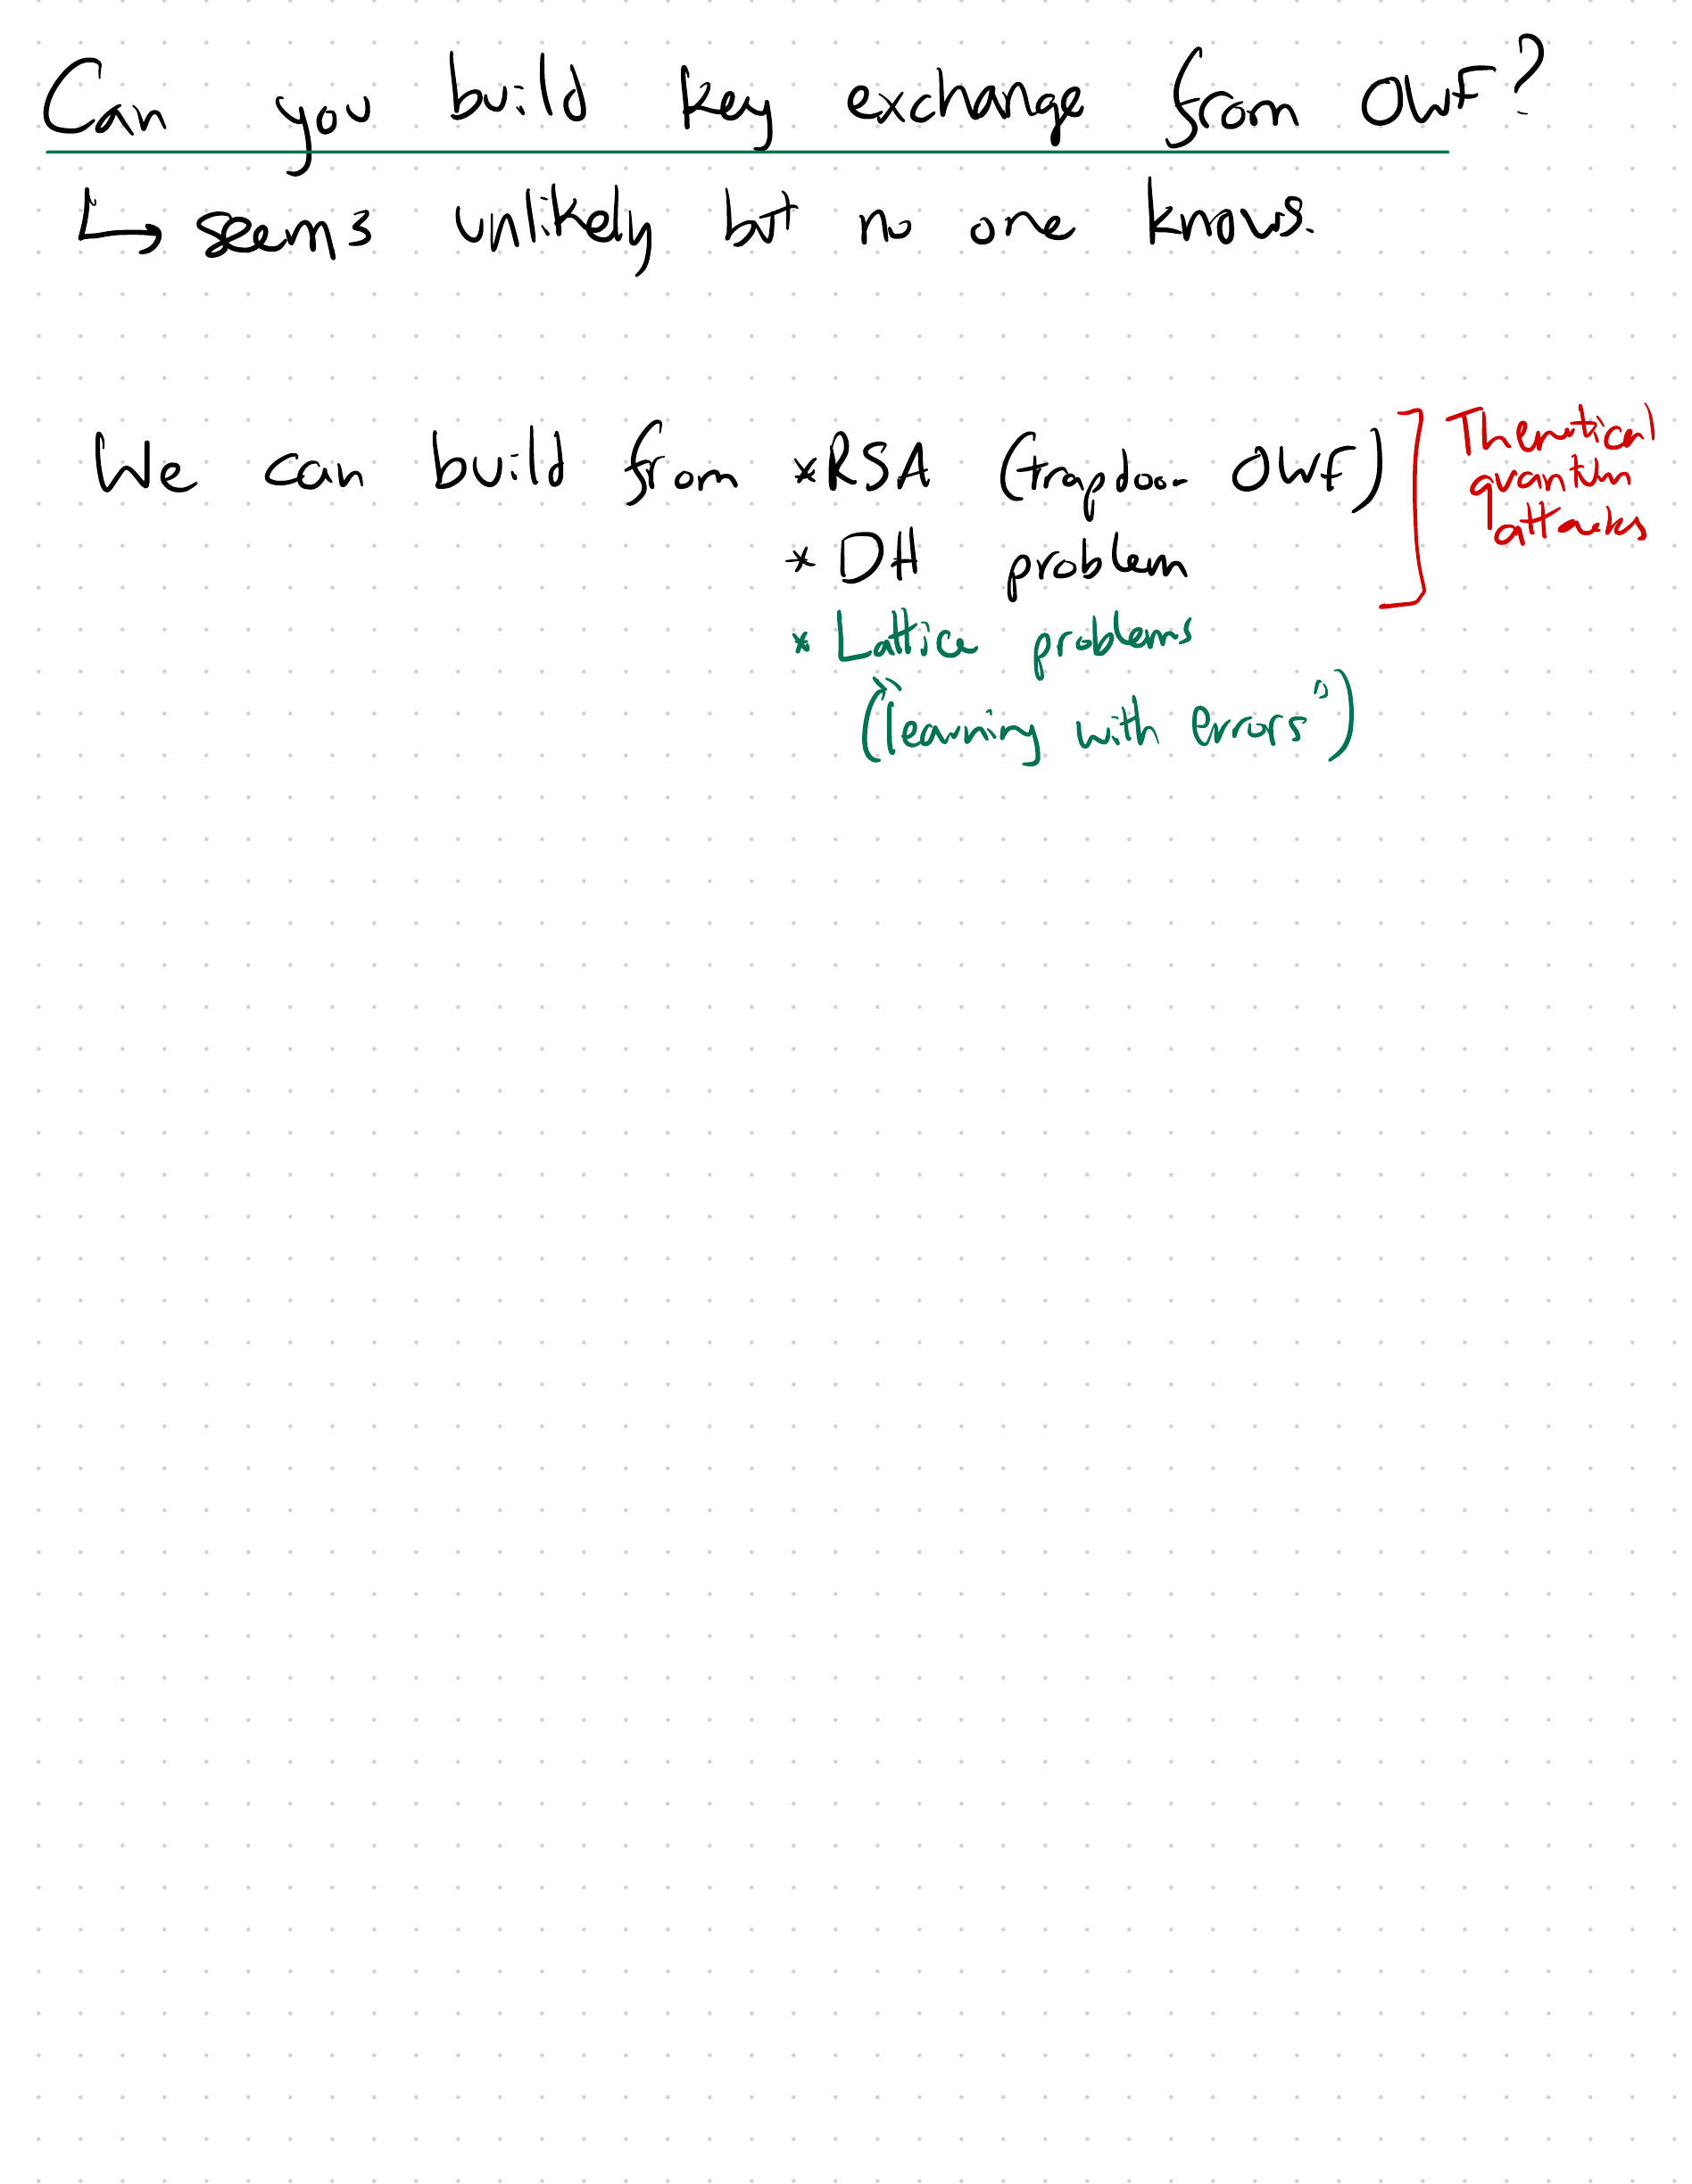 Can you build key exchange from OWF?
↳ seems unlikely but no one knows.
We can build from *RSA (trapdoor OWF)
* DH problem
* Lattice problems
("learning with errors")
Theretical
quantum
attacks